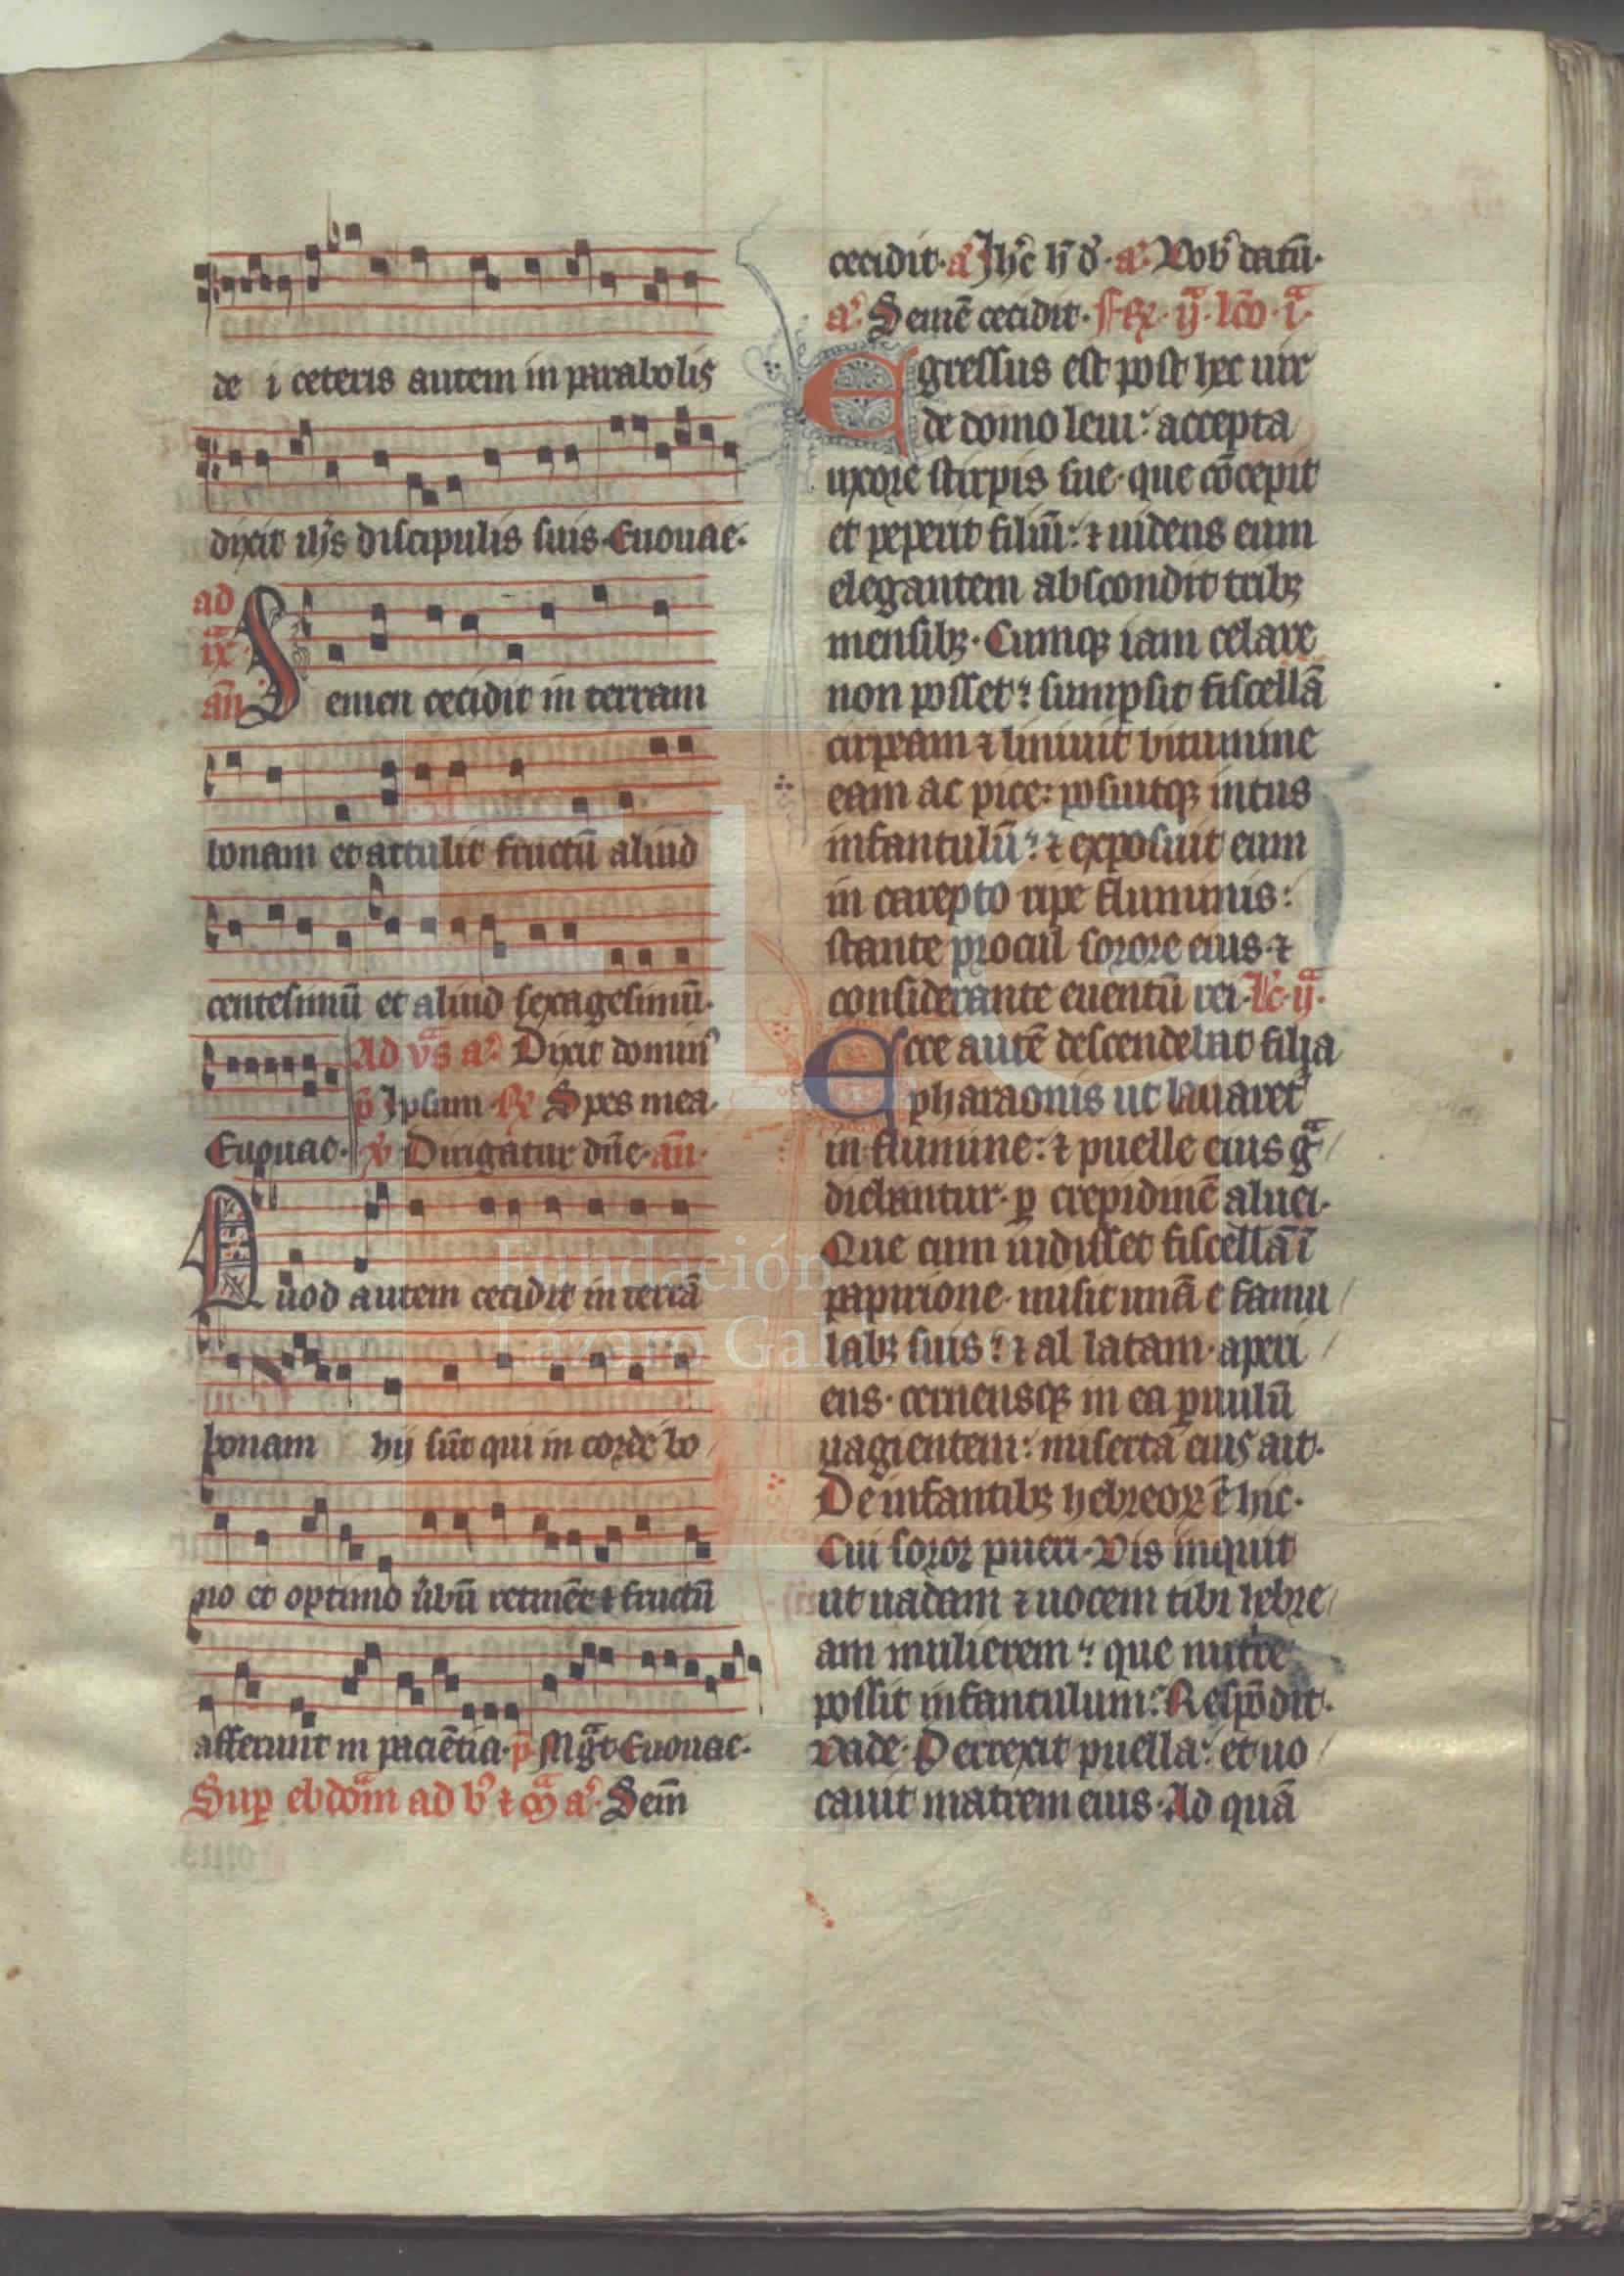 de i ceteris autem in parabolis
dixit ihs discipulis suis. Euouae.
ad
ix
an
Semen cecidit in terram
bonam et attulit fructū aliud
centesimū et aliud sexagesimū.
Ad vs a. Dixit domin
p Ipsum. R Spes mea.
Euouae. v Dirigatur dne. an.
Quod autem cecidit in terrā
bonam hij sūt qui in corde bo
no et optimo ubū retinēt ⁊ fructū
afferunt in paciētia. p Mgt Euouae.
Sup ebdom ad b ⁊ m a. Sem
cecidit. a Ihc h d. a. Vob datū.
a. Semē cecidit. fr ij. lco i.
Egressus est post hec uir
de domo leui: accepta
uxore stirpis sue. que cōcepit
et peperit filiū: ⁊ uidens eum
elegantem abscondit tribꝫ
mensibꝫ. Cumqꝫ iam celare
non posset: sumpsit fiscellā
cirpeam ⁊ liniuit bitumine
eam ac pice: posuitqꝫ intus
infantulū: ⁊ exposuit eum
in carepto ripe fluminis:
stante procul sorore eius. ⁊
considerante euentū rei. lc ij.
Ecce autē descendebat filia
pharaonis ut lauaret
in flumine: ⁊ puelle eius ga
diebantur. p crepidinē aluei.
Que cum uidisset fiscellā ī
papirione. misit unā e famu
labꝫ suis: ⁊ al latam. aperi
ens. cernensqꝫ in ea puulū
uagientem: miserta eius ait.
De infantibꝫ hebreoꝝ ē hic.
Cui soror pueri. Vis inquit
ut uadam ⁊ uocem tibi hebre
am mulierem: que nutre
possit infantulum: Respōdit.
Vade. Perrexit puella: et uo
cauit matrem eius. Ad quā
Fundación
Lázaro Gal